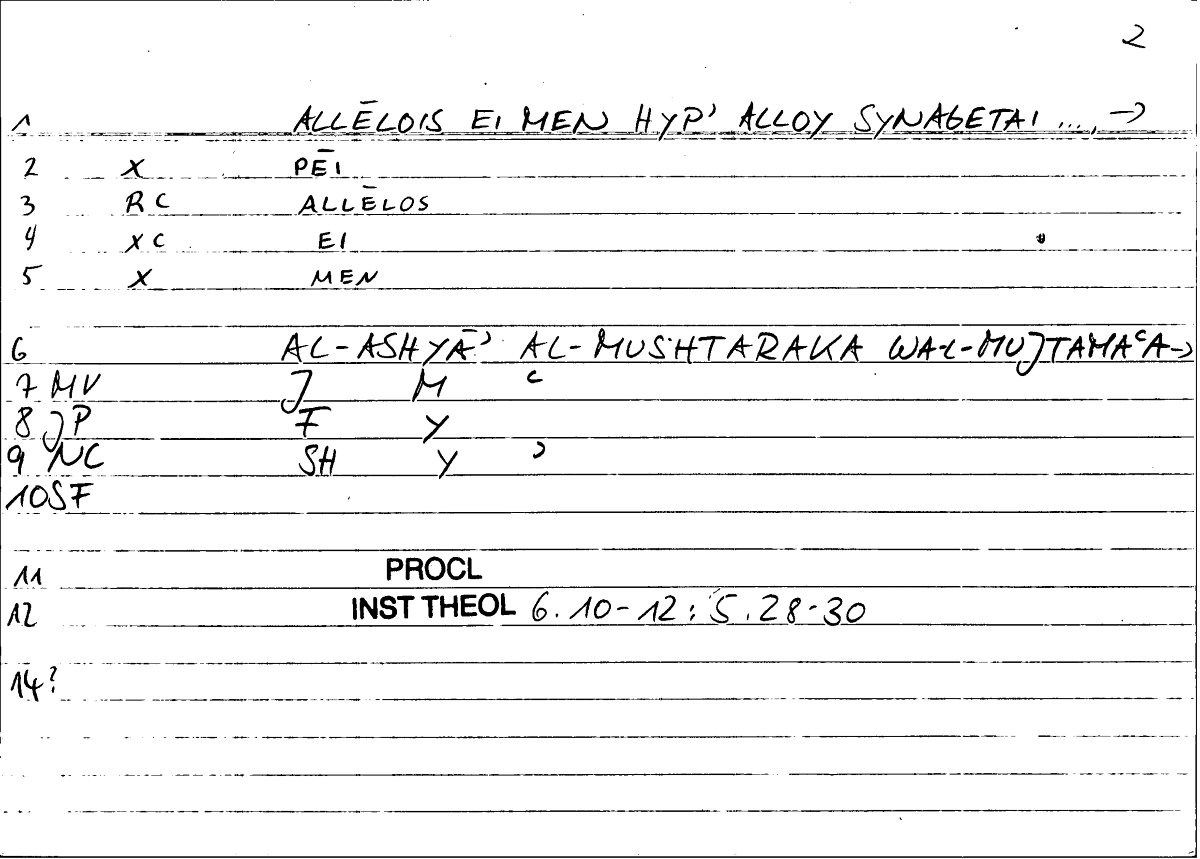 2
1 ALLĒLOIS EI MEN HYP' ALLOY SYNAGETAI ..., →
2 X PĒI
3 RC ALLĒLOS
4 XC EI
5 X MEN
6 AL-ASHYĀʾ AL-MUSHTARAKA WA-L-MUJTAMAʿA→
7 MV J M ʿ
8 JP F Y
9 NC SH Y ʾ
10 SF
11 PROCL
12 INST THEOL 6.10-12; 5.28-30
14?